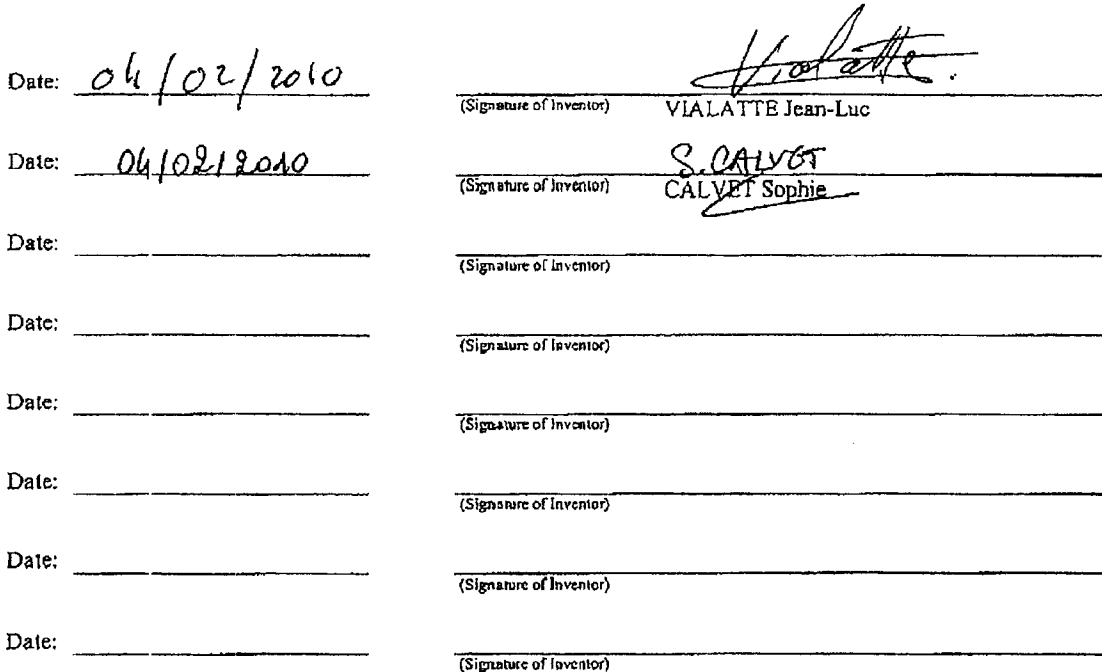 Date: 04/02/2010 Vialatte.
(Signature of Inventor) VIALATTE Jean-Luc
Date: 04/02/2010 S. CALVET
(Signature of Inventor) CALVET Sophie
Date:
(Signature of Inventor)
Date:
(Signature of Inventor)
Date:
(Signature of Inventor)
Date:
(Signature of Inventor)
Date:
(Signature of Inventor)
Date:
(Signature of Inventor)